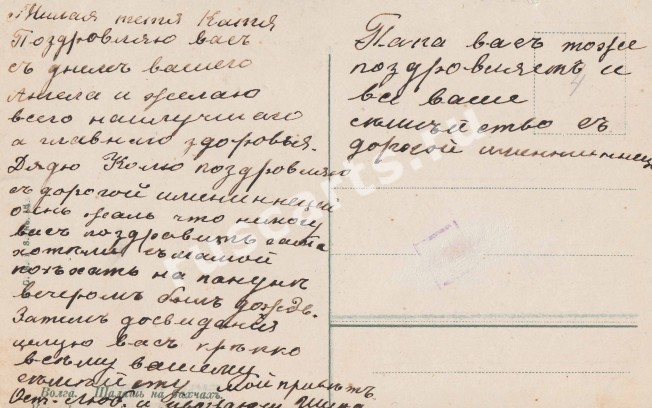 Милая тетя Катя
Поздровляю васъ
съ днемъ вашего
Ангела и желаю
всего наилучшаго
а главнаго здоровья.
Дядю Колю поздровляю
съ дорогой именинницей
очень жаль что немогу
васъ поздравить сама
хотели съ мамой
поехать на
вечеромъ былъ дождь.
Затемъ досвидания
целую васъ крѣпко
всему вашему
семейству мой приветъ.
Волга. Шалашъ на бахчахъ.
Ост. люб. и
Папа васъ тоже
поздровляетъ и
все ваше
семейство съ
дорогой именинницей
4
ruscarts.ru